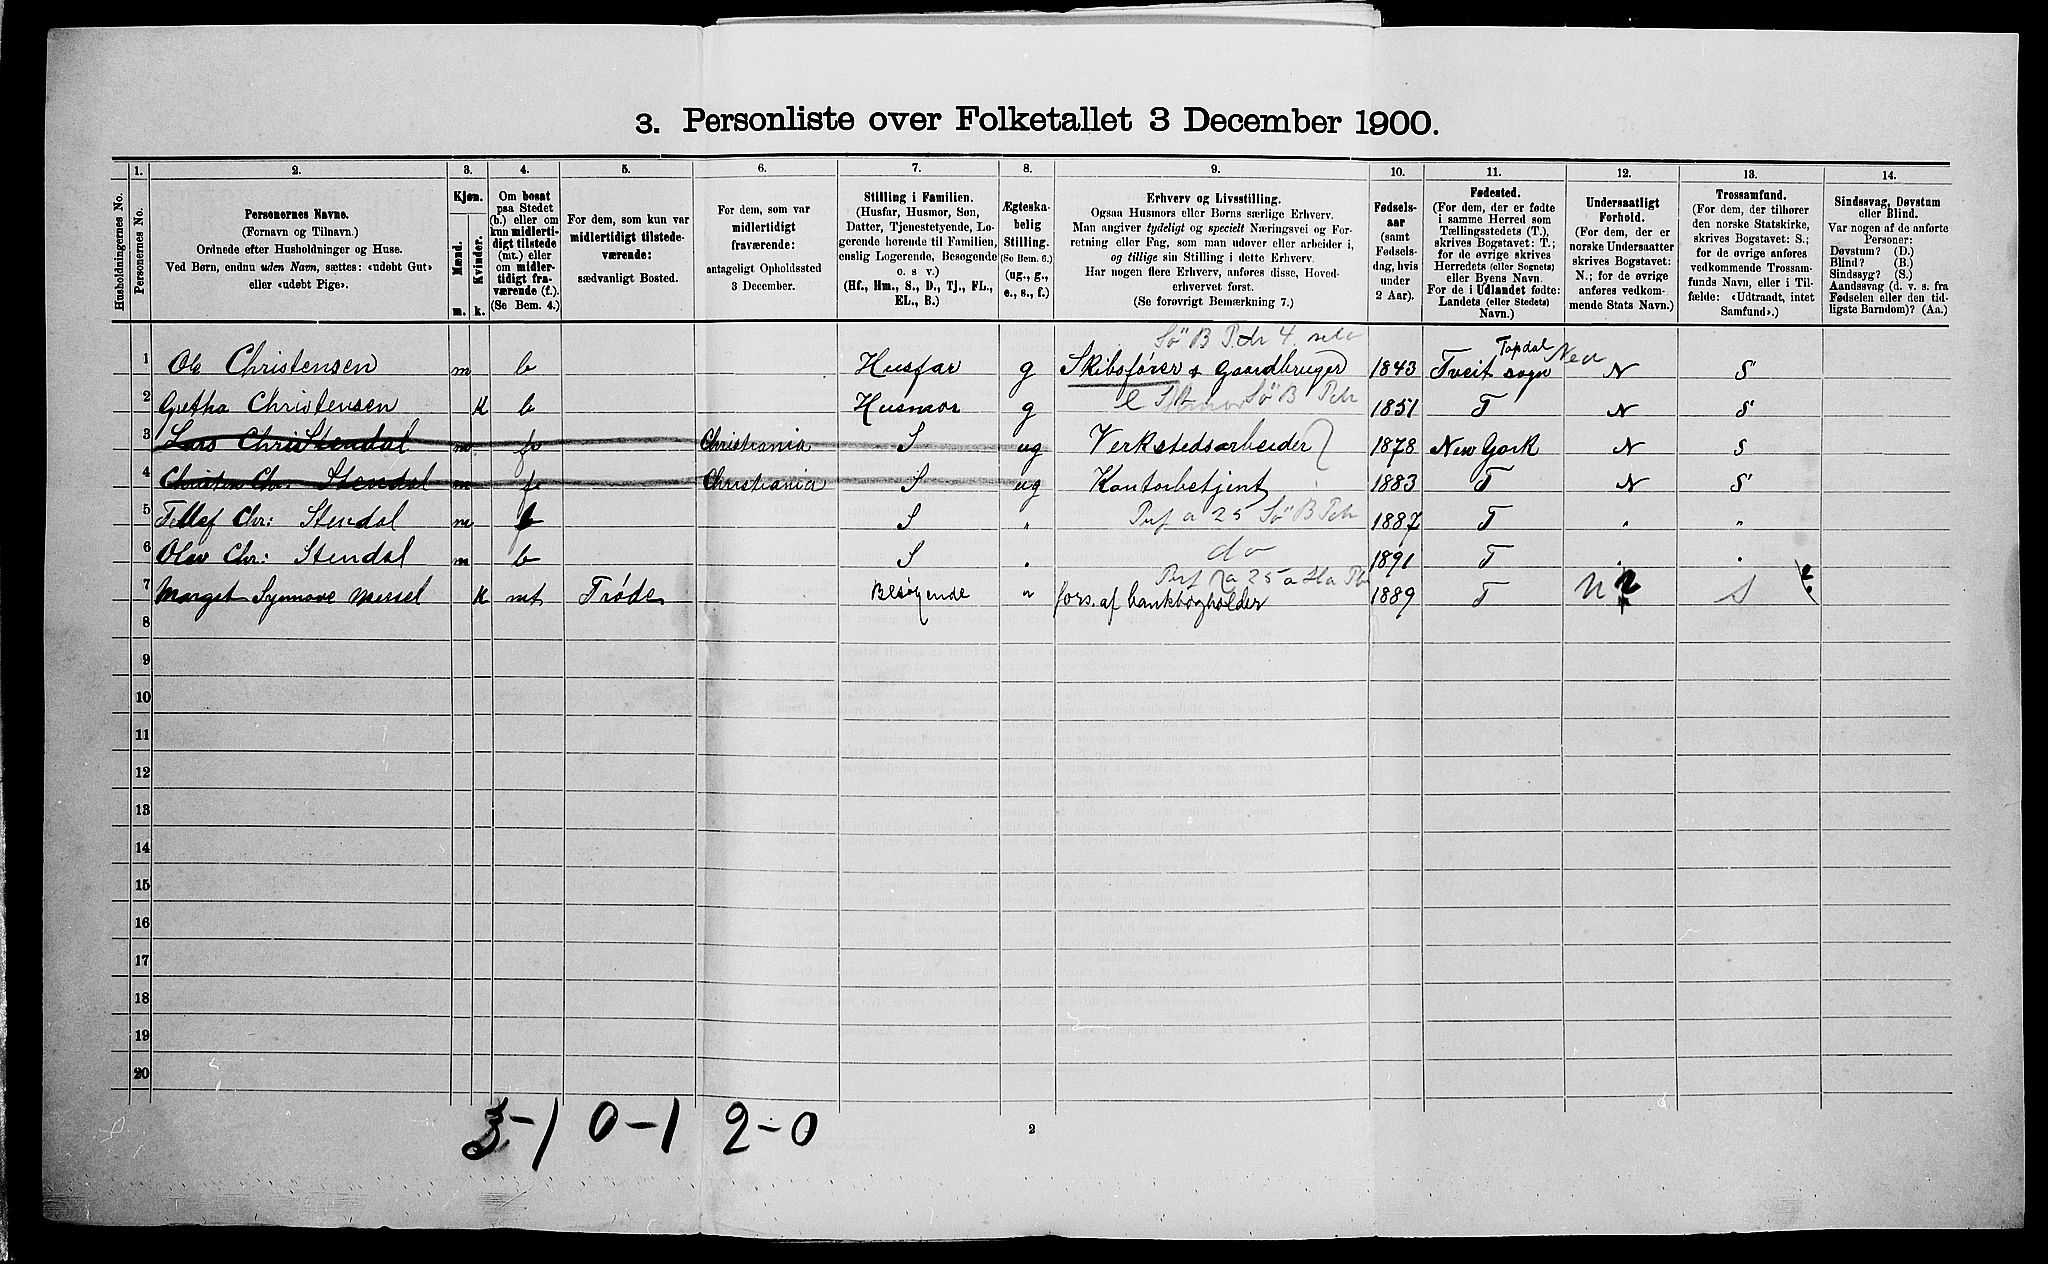 3. Personliste over Folketallet 3 December 1900.
Husholdningernes No.
1.
Personernes No.
2.
Personernes Navne.
(Fornavn og Tilnavn.)
Ordnede efter Husholdninger og Huse.
Ved Børn, endnu uden Navn, sættes: «udøbt Gut»
eller «udøbt Pige».
3.
Kjøn.
Mænd.
Kvinder.
m.
k.
4.
Om bosat
paa Stedet
(b.) eller om
kun midlerti-
digt tilstede
(mt.) eller
om midler-
tidigt fra-
værende (f.).
(Se Bem. 4.)
5.
For dem, som kun var
midlertidigt tilstede-
værende:
sædvanligt Bosted.
6.
For dem, som var
midlertidigt
fraværende:
antageligt Opholdssted
3 December.
7.
Stilling i Familien.
(Husfar, Husmor, Søn,
Datter, Tjenestetyende, Lo-
gerende hørende til Familien,
enslig Logerende, Besøgende
o. s v.)
(Hf., Hm., S., D., Tj., FL.,
EL., B.)
8.
Ægteska-
belig
Stilling.
(Se Bem. 6.)
(ug., g.,
e., s., f.)
9.
Erhverv og Livsstilling.
Ogsaa Husmors eller Børns særlige Erhverv.
Man angiver tydeligt og specielt Næringsvei og For-
retning eller Fag, som man udøver eller arbeider i,
og tillige sin Stilling i dette Erhverv.
Har nogen flere Erhverv, anføres disse, Hoved-
erhvervet først.
(Se forøvrigt Bemærkning 7.)
10.
Fødsels-
aar
(samt
Fødsels-
dag, hvis
under
2 Aar).
11.
Fødested.
(For dem, der er fødte
i samme Herred som
Tællingsstedets (T.),
skrives Bogstavet: T.;
for de øvrige skrives
Herredets (eller Sognets)
eller Byens Navn.
For de i Udlandet fødte:
Landets (eller Stedets)
Navn.)
12.
Undersaatligt
Forhold.
(For dem, der er
norske Undersaatter
skrives Bogstavet:
N.; for de øvrige
anføres vedkom-
mende Stats Navn.)
13.
Trossamfund.
(For dem, der tilhører
den norske Statskirke,
skrives Bogstavet: S.;
for de øvrige anføres
vedkommende Trossam-
funds Navn, eller i Til-
fælde: «Udtraadt, intet
Samfund».)
14.
Sindssvag, Døvstum
eller Blind.
Var nogen af de anførte
Personer:
Døvstum? (D.)
Blind? (B.)
Sindssyg? (S.)
Aandssvag (d. v. s. fra
Fødselen eller den tid-
ligste Barndom)? (Aa.)
Sö B Petr 4.
Topdal
1 Ole Christensen m b Husfar g Skibsfører & Gaardbruger 1843 Tveit sogn N S
2 Gretha Christensen K b Husmor g e Sö B Petr 1851 T N S
3 Lars Chri Stendal m f Christiania S ug Verkstedsarbeider 1878 New York N S
4 Christen Chr: Stendal m f Christiania S ug Kontorbetjent 1883 T N S
5 Tellef Chr: Stendal m b S " Prf a 25 Sö B Petr 1887 T " "
6 Olav Chr: Stendal m b S " do 1891 T " "
Prf a 25 a
7 Marget Synnove Messel K mt Trøde Besøgende " fors. af bankbogholder 1889 T N ? S ?
8
9
10
11
12
13
14
15
16
17
18
19
20
3-1 0-1 2-0
2